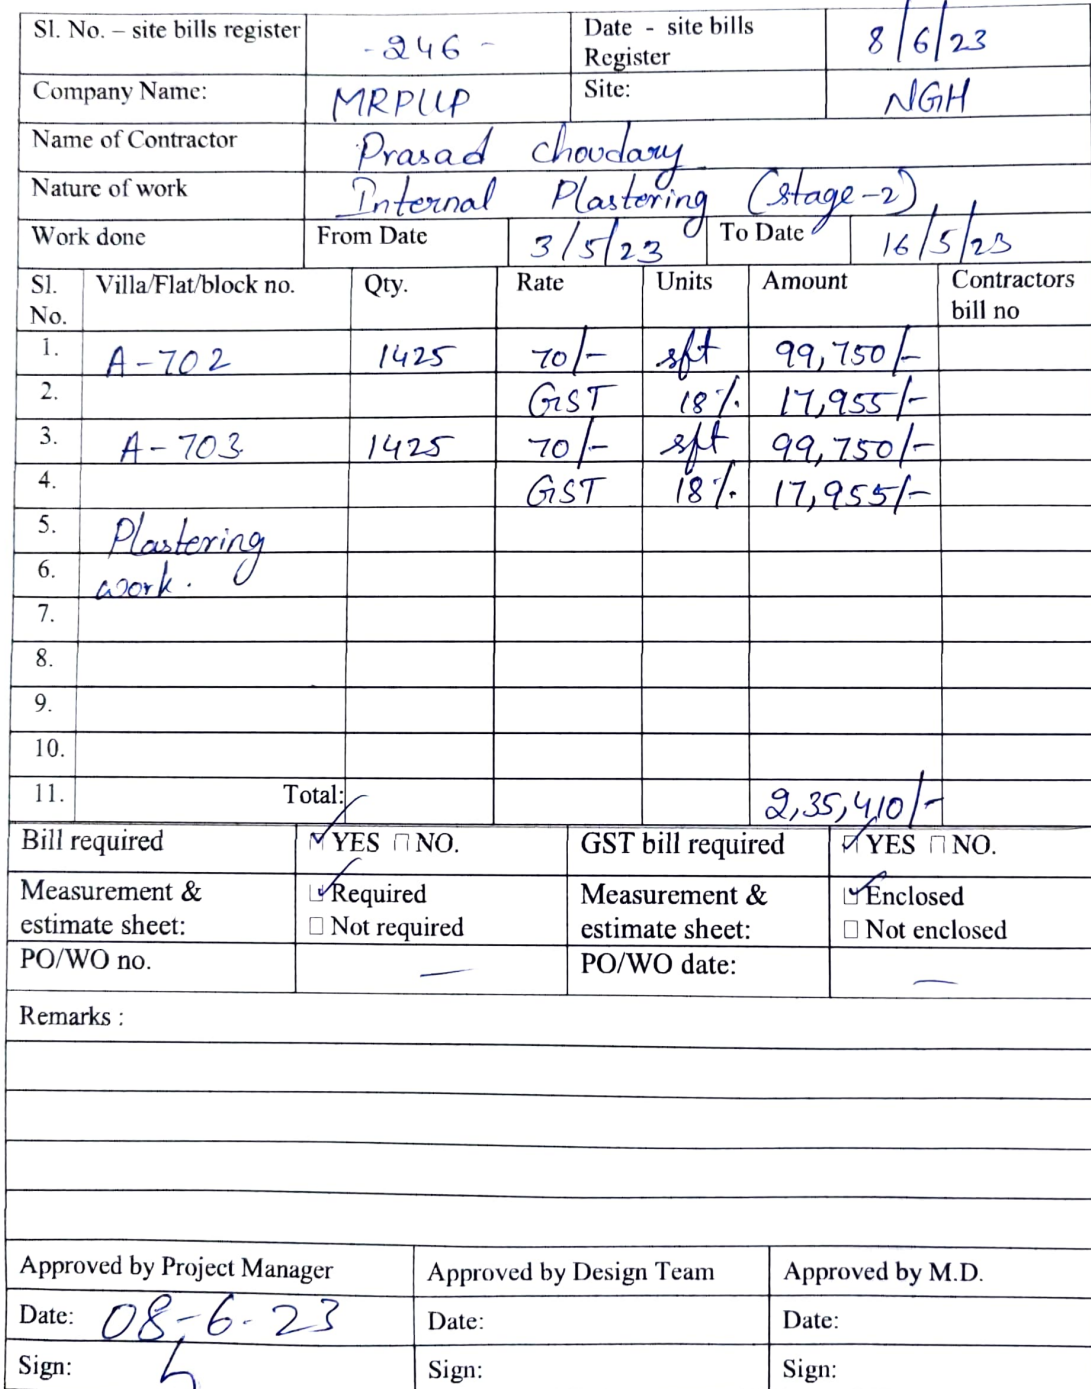 Sl. No. – site bills register -246- Date - site bills Register 8/6/23
Company Name: MRPLLP Site: NGH
Name of Contractor Prasad choudary
Nature of work Internal Plastering (stage-2)
Work done From Date 3/5/23 To Date 16/5/23
Sl. No. Villa/Flat/block no. Qty. Rate Units Amount Contractors bill no
1. A-702 1425 70/- sft 99,750/-
2. GST 18% 17,955/-
3. A-703 1425 70/- sft 99,750/-
4. GST 18% 17,955/-
5. Plastering
6. work.
7.
8.
9.
10.
11. Total: 2,35,410/-
Bill required ☑ YES □ NO. GST bill required ☑ YES □ NO.
Measurement & estimate sheet: ☑ Required □ Not required Measurement & estimate sheet: ☑ Enclosed □ Not enclosed
PO/WO no. — PO/WO date: —
Remarks :
Approved by Project Manager Approved by Design Team Approved by M.D.
Date: 08-6-23 Date: Date:
Sign: Sign: Sign: